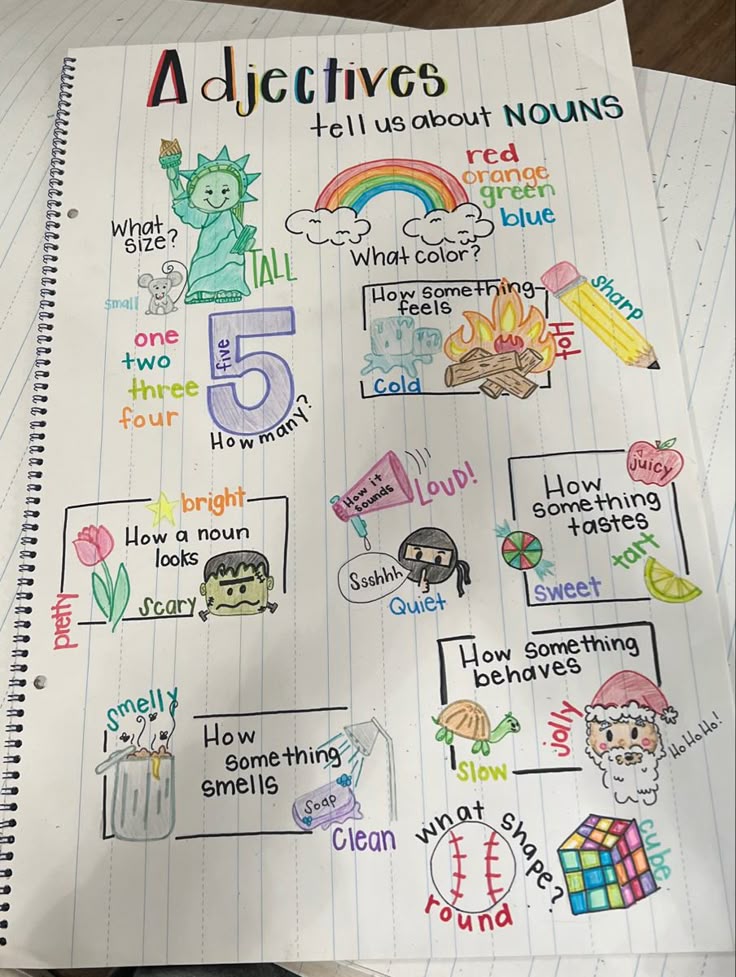 Adjectives
tell us about NOUNS
What
size?
small
TALL
red
orange
green
blue
What color?
one
two
three
four
five
5
How many?
How something
feels
Cold
Hot
sharp
bright
How a noun
looks
pretty
Scary
How it
sounds
LOUD!
Ssshhh
Quiet
How
something
tastes
juicy
sweet
tart
smelly
How
something
smells
Soap
Clean
How something
behaves
Slow
jolly
Ho Ho Ho!
what shape?
round
cube